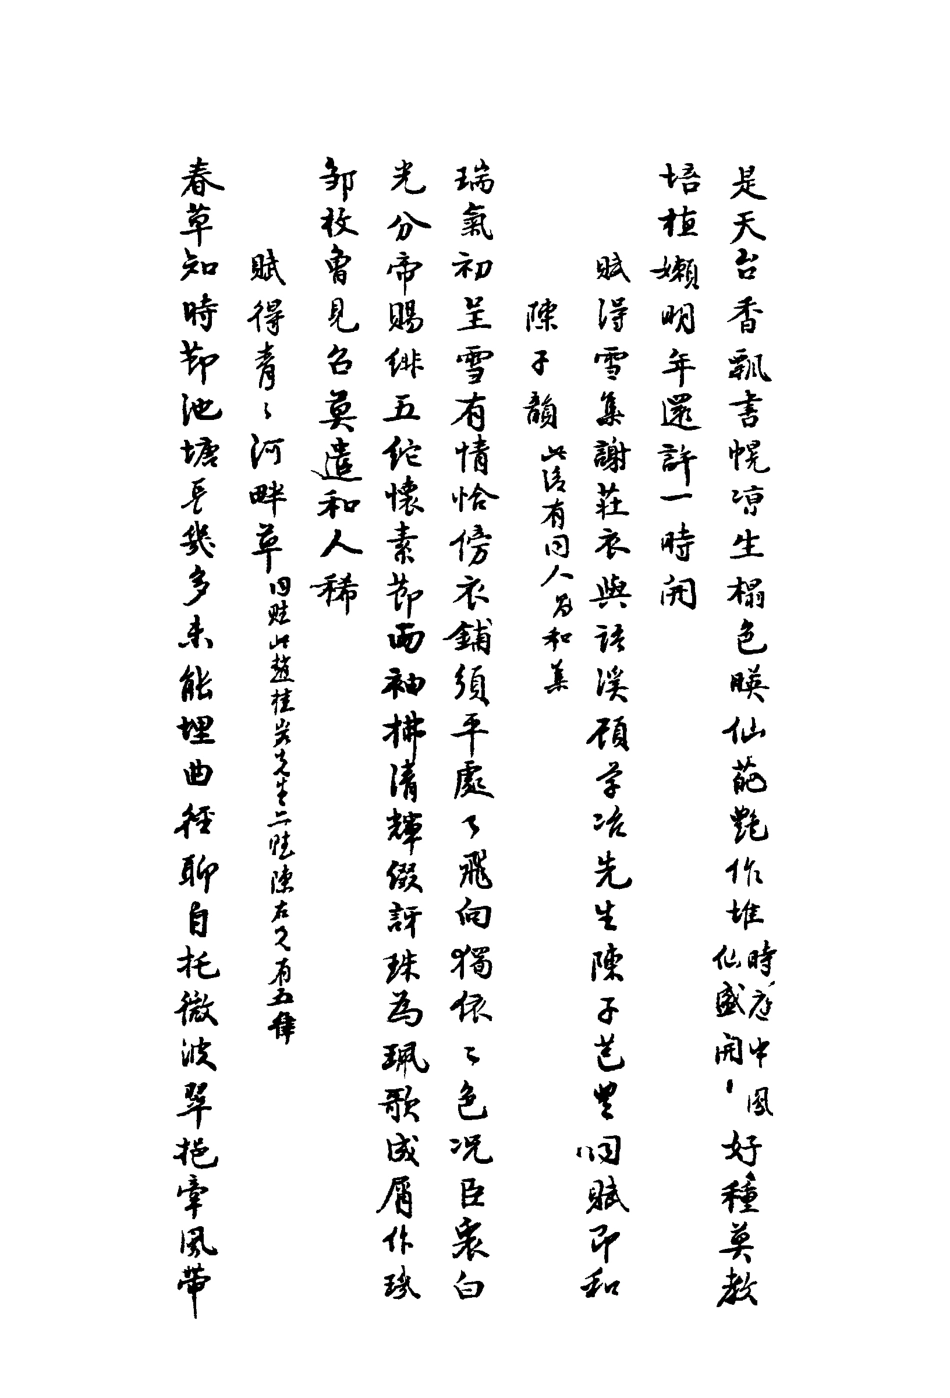 是天台香飄書幌凉生榻色暎仙葩艷作堆時庭中鳳仙盛開好種莫教
培植嬾明年還許一時開
賦得雪集謝莊衣與語溪顧學冶先生陳子芑豐同賦即和
陳子韻此後有同人和集
瑞氣初呈雪有情恰傍衣鋪須平處處飛向獨依依色况臣衷白
光分帝賜緋五紽懷素節兩袖拂清輝綴訝珠為珮歌成屑作璣
鄒枚曾見召莫遣和人稀
賦得青青河畔草同賦此趙桂岩先生二陳右久有五律
春草知時節池塘長幾多未能埋曲徑聊自托微波翠挹牽風帶